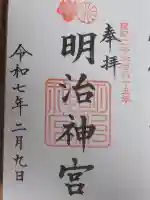 奉拝
明治神宮
令和七年二月九日